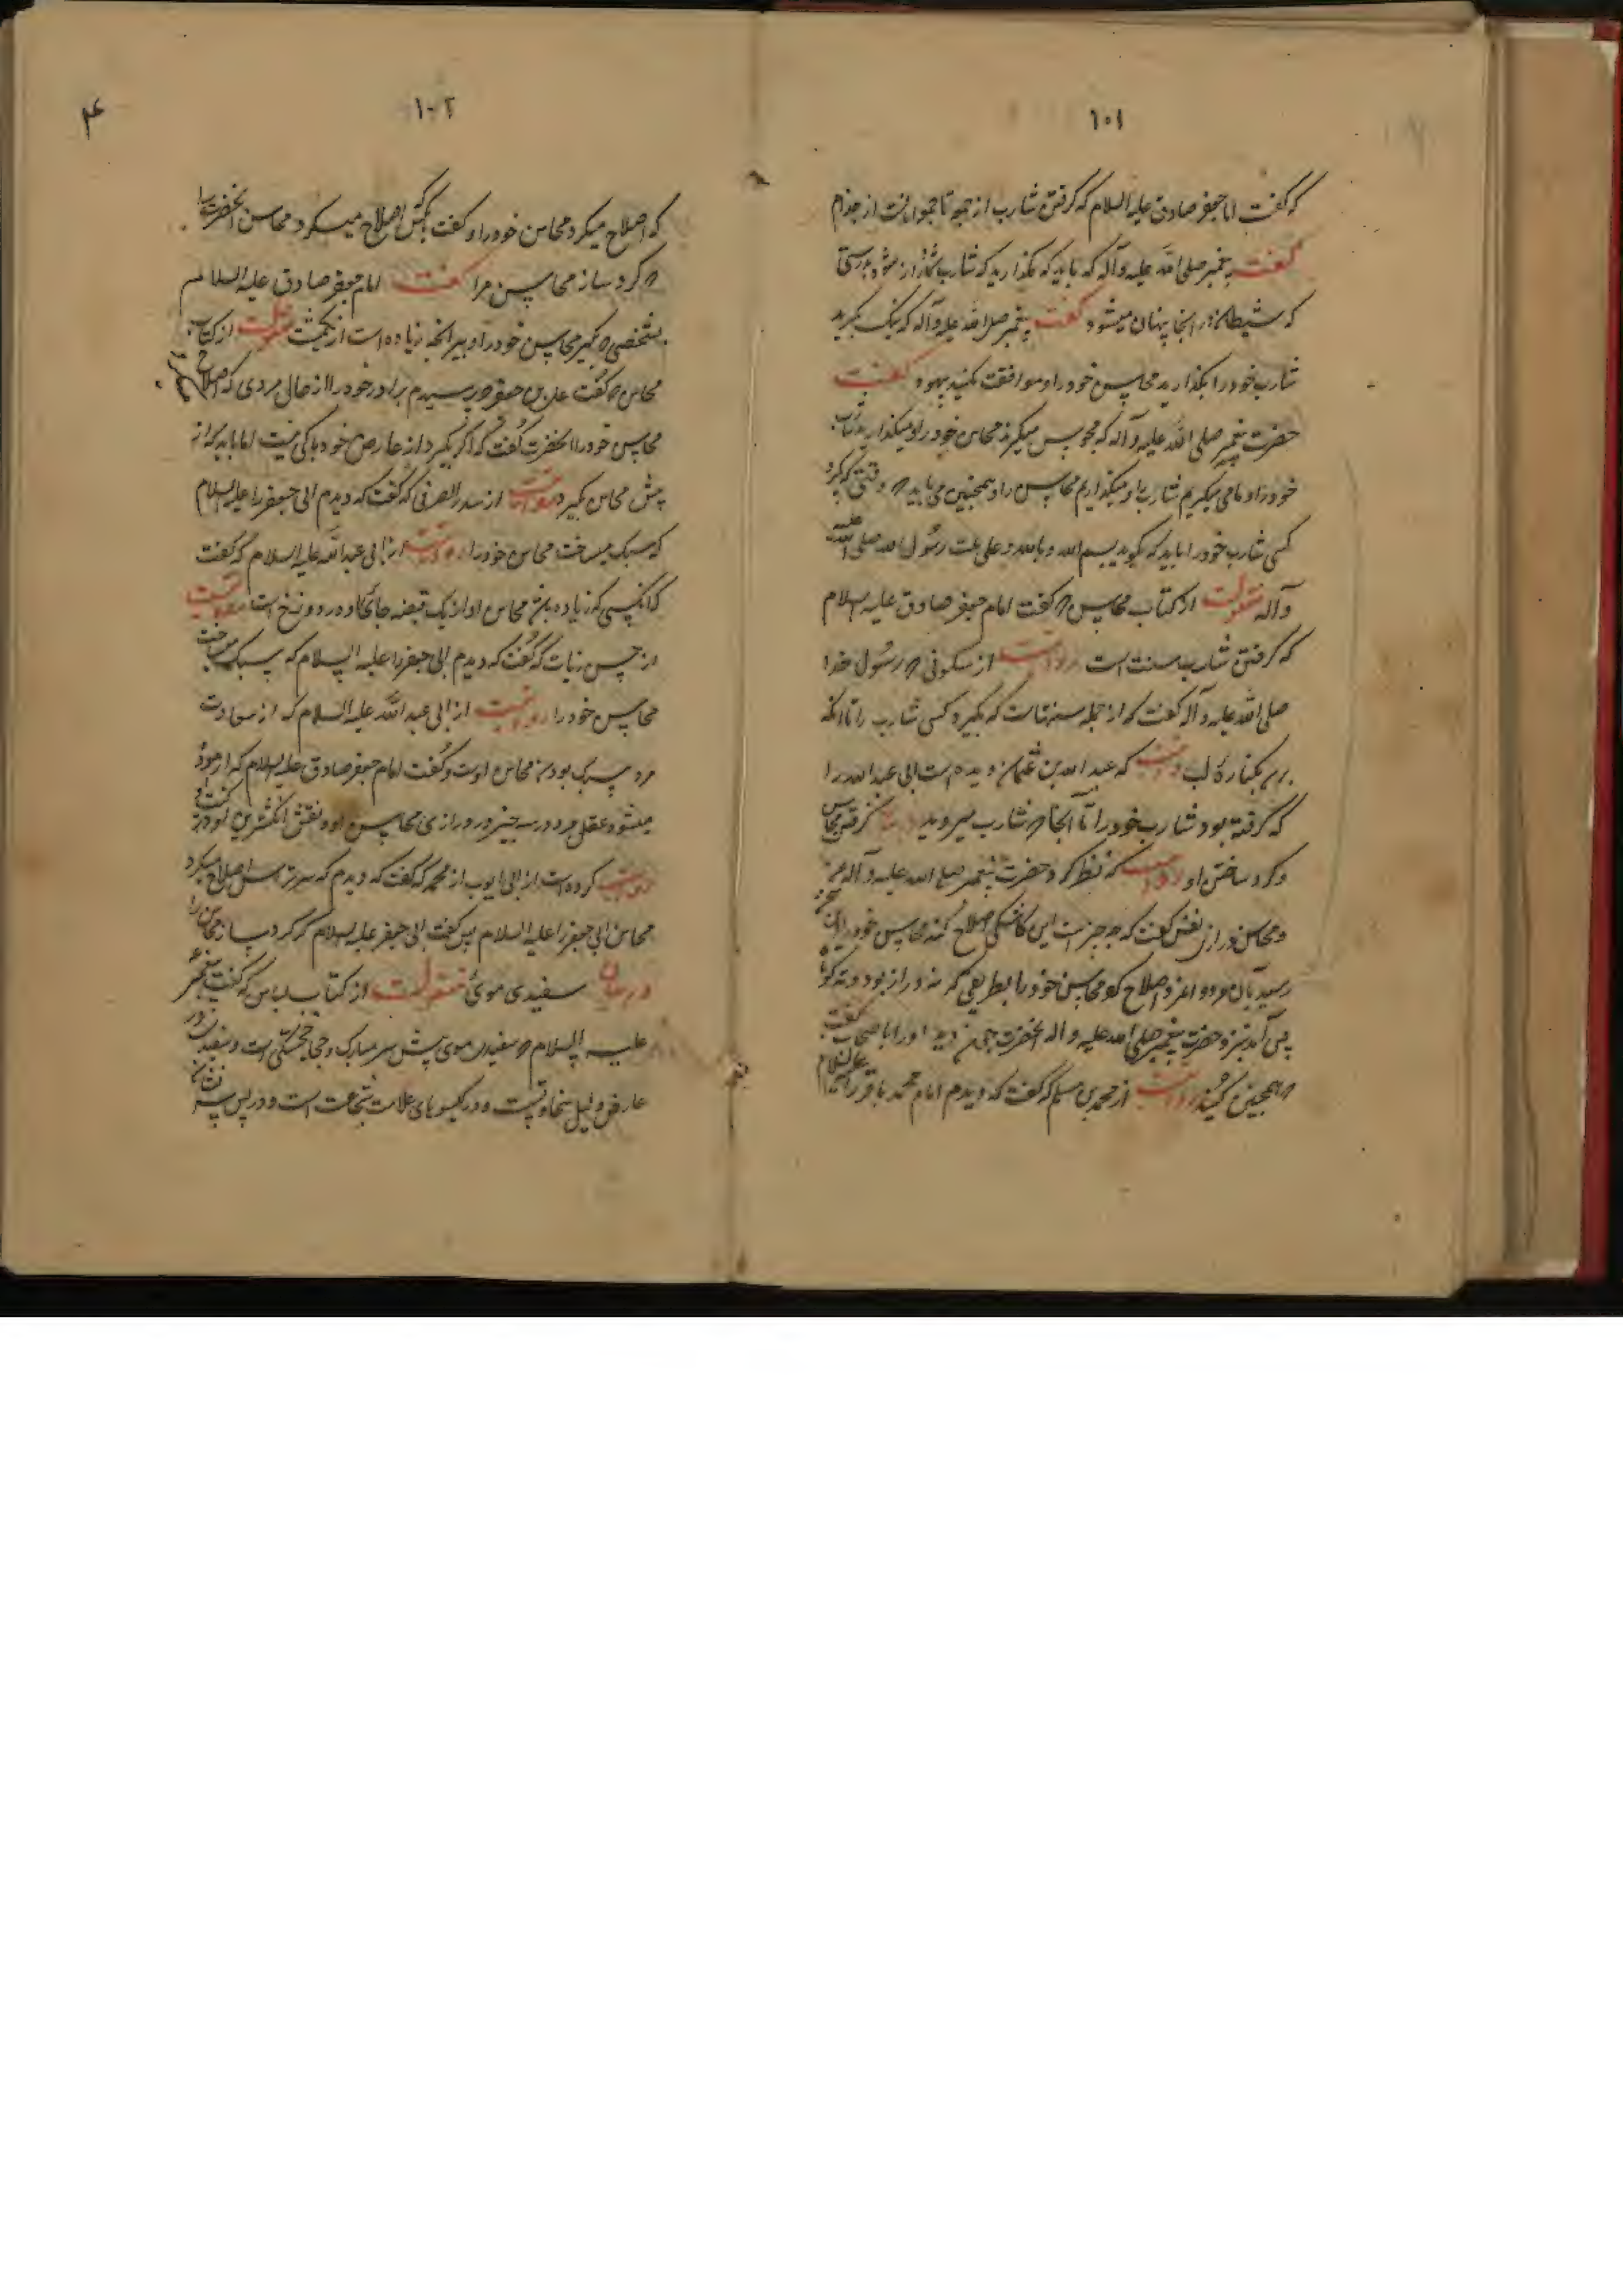 ۱۰۱
که گفت امام جعفر صادق علیه السلام که گرفتن شارب از جمعه تا جمعه امانست از جذام
گفت پیغمبر صلی الله علیه وآله که باید که نگذارید که شارب شما دراز شود بدرستی
که شیطان در آنجا پنهان میشود گفت پیغمبر صلی الله علیه وآله که نیک بگیرید
شارب خود را بگذارید محاسن خود را و موافقت مکنید بیهود گفت
حضرت پیغمبر صلی الله علیه وآله که مجوس میگیرند محاسن خود را و میگذارند شارب
خود را و ما می میگیریم شارب را و میگذاریم محاسن را و همچنین می باید وقتی که گیرد
کسی شارب خود را باید که بگوید بسم الله و بالله و علی ملت رسول الله صلی الله علیه
وآله منقولست از کتاب محاسن گفت امام جعفر صادق علیه السلام
که گرفتن شارب سنت است روایت از سکونی رسول خدا
صلی الله علیه وآله گفت که از جمله سنتهاست که بگیرد کسی شارب را تا آنکه
برسد بکناره لب که عبدالله بن عثمان دیده است ابی عبدالله را
که گرفته بود شارب خود را تا آنجا شارب میروید گرفتن محاس
و گرد ساختن او روایت که نظر کرد حضرت پیغمبر صلی الله علیه وآله
و محاسن دراز گفت که چه چیز است این کاشکی اصلاح کند محاسن خود را
رسید بآن مرد و اصلاح کرد محاسن خود را بطریقی که نه دراز بود و نه کوتا
پس آمد نزد حضرت پیغمبر صلی الله علیه وآله آنحضرت چون دید او را باصحاب گفت
همچنین کنید روایت از محمد بن مسلم که گفت که دیدم امام محمد باقر را علیه السلام
۱۰۲
که اصلاح میکرد محاسن خود را و گفت اصلاح میکرد محاسن آنحضرت را
گرد ساز محاسن مرا گفت امام جعفر صادق علیه السلام
بشخصی بگیر محاسن خود را و ببر آنچه زیاده است از یکمشت منقولست از کتاب
محاسن گفت علی بن جعفر پرسیدم برادر خود را از حال مردی که اصلاح
محاسن خود را آنحضرت گفت که اگر بگیرد از عارض خود باکی نیست اما باید که از
پیش محاسن نگیرد روایت از سدیر الصرفی که گفت که دیدم ابی جعفر را علیه السلام
که سبک میساخت محاسن خود را روایت از ابی عبدالله علیه السلام که گفت
که آنکسی که زیاده باشد محاسن او از یک قبضه جائگاه در دوزخ است روایت
از حسن زیات که گفت که دیدم ابی جعفر را علیه السلام که سبک میساخت
محاسن خود را روایت از ابی عبدالله علیه السلام که از سعادت
مرد سبک بودن محاسن اوست و گفت امام جعفر صادق علیه السلام که آزموده
میشود عقل مرد در سه چیز در درازی محاسن او و نقش انگشتری او
روایت کرده است از ابی ایوب از محمد که گفت که دیدم که سرتراش اصلاح میکرد
محاسن ابی جعفر را علیه السلام پس گفت ابی جعفر علیه السلام که گرد بساز محاسن را
در بیان سفیدی موی منقولست از کتاب لباس که گفت پیغمبر
علیه السلام سفیدی موی پیش سر مبارک و خجستگی است و سفیدی در
عارض دلیل سخاوتست و در گیسوهای علامت شجاعت است و در پس سر